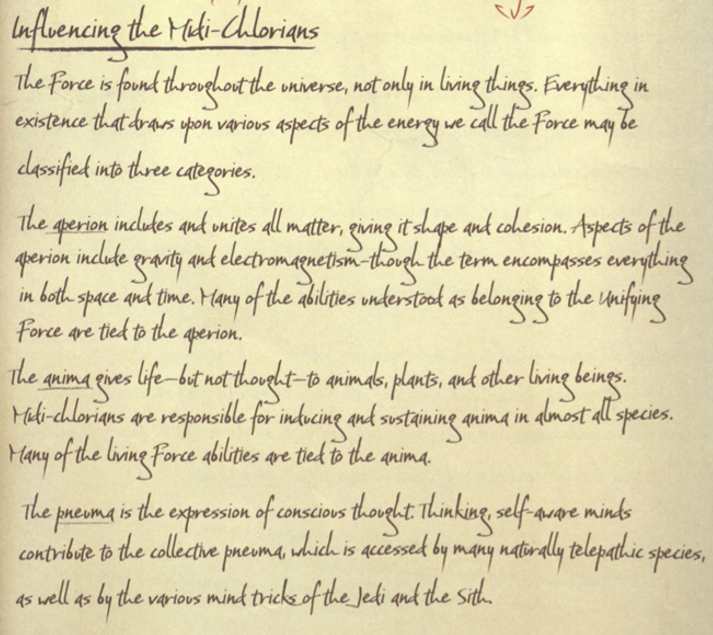 Influencing the Midi-Chlorians
The Force is found throughout the universe, not only in living things. Everything in
existence that draws upon various aspects of the energy we call the Force may be
classified into three categories.
The aperion includes and unites all matter, giving it shape and cohesion. Aspects of the
aperion include gravity and electromagnetism—though the term encompasses everything
in both space and time. Many of the abilities understood as belonging to the Unifying
Force are tied to the aperion.
The anima gives life—but not thought—to animals, plants, and other living beings.
Midi-chlorians are responsible for inducing and sustaining anima in almost all species.
Many of the living Force abilities are tied to the anima.
The pneuma is the expression of conscious thought. Thinking, self-aware minds
contribute to the collective pneuma, which is accessed by many naturally telepathic species,
as well as by the various mind tricks of the Jedi and the Sith.